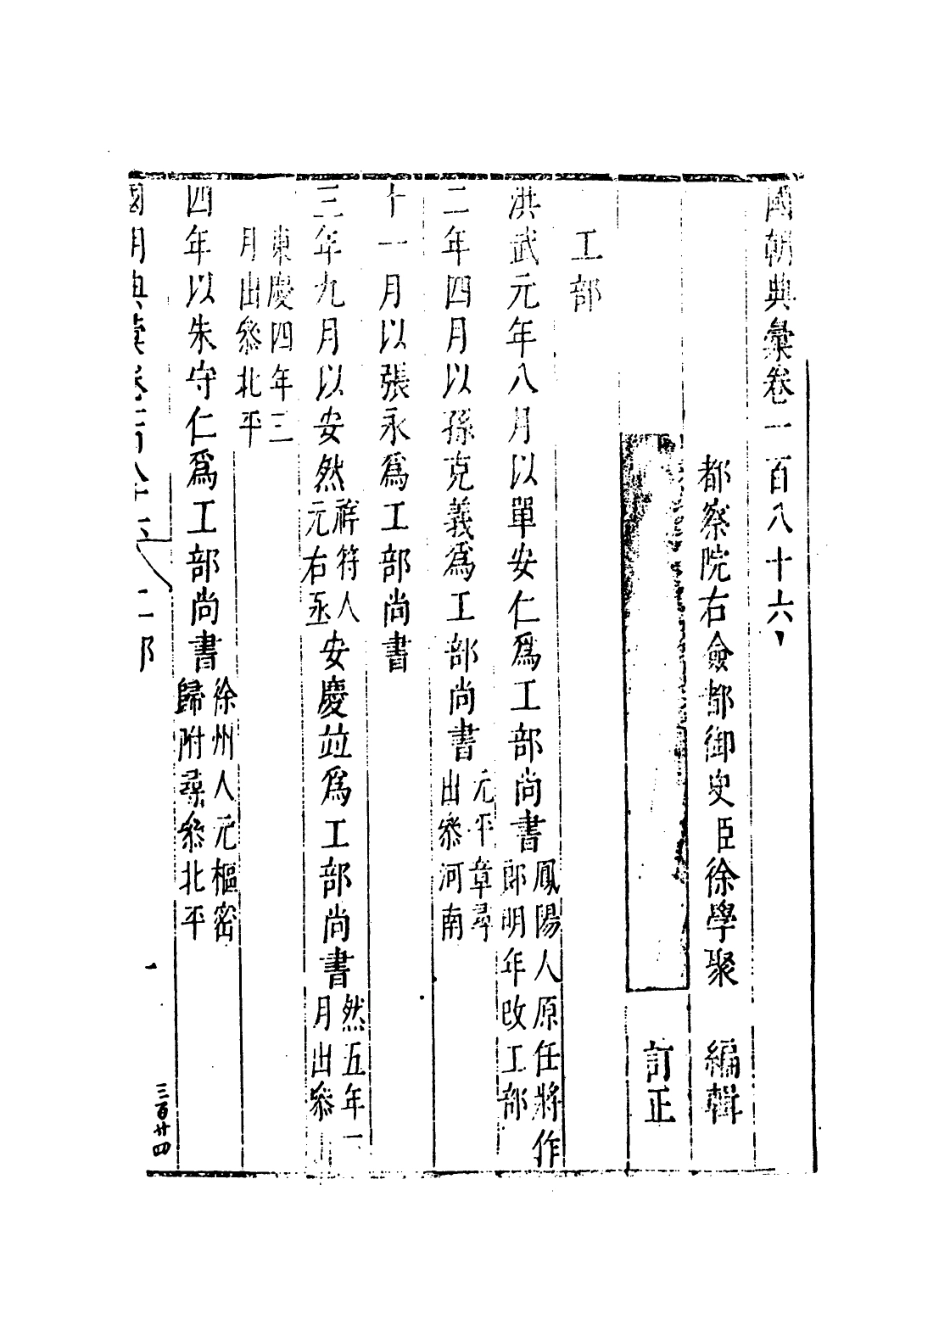 國朝典彙卷一百八十六
都察院右僉都御史臣徐學聚 編輯
訂正
工部
洪武元年八月以單安仁爲工部尚書鳳陽人原任將作郎明年改工部
二年四月以孫克義爲工部尚書元平章尋出叅河南
十一月以張永爲工部尚書
三年九月以安然祥符人元右丞安慶竝爲工部尚書然五年一月出叅山
東慶四年三月出叅北平
四年以朱守仁爲工部尚書徐州人元樞密歸附尋叅北平
國朝典彙卷 工部 一
三百廿四